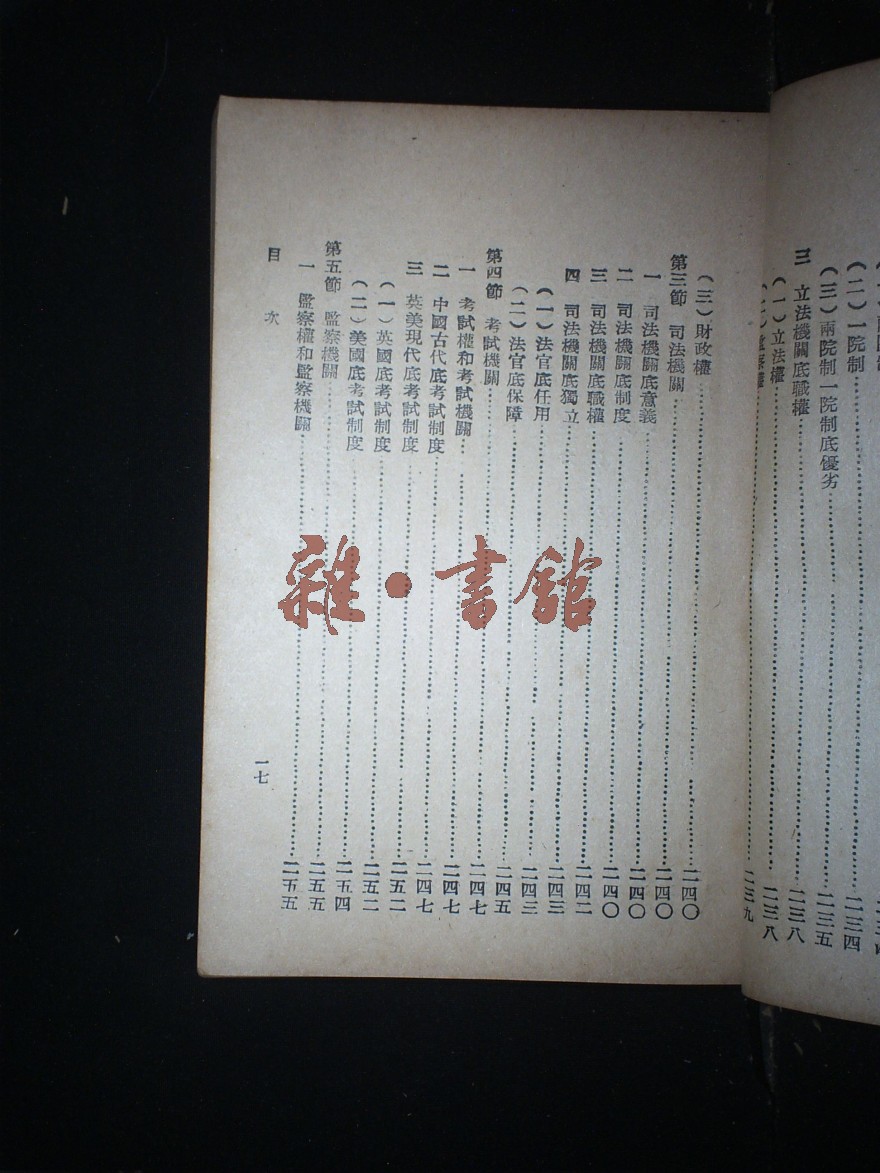 （二）一院制……………………二三四
（三）兩院制一院制底優劣……………………二三五
三　立法機關底職權……………………二三八
（一）立法權……………………二三八
（二）監察權……………………二三九
（三）財政權……………………二四〇
第三節　司法機關……………………二四〇
一　司法機關底意義……………………二四〇
二　司法機關底制度……………………二四〇
三　司法機關底職權……………………二四二
四　司法機關底獨立……………………二四三
（一）法官底任用……………………二四三
（二）法官底保障……………………二四五
第四節　考試機關……………………二四七
一　考試權和考試機關……………………二四七
二　中國古代底考試制度……………………二四七
三　英美現代底考試制度……………………二五二
（一）英國底考試制度……………………二五二
（二）美國底考試制度……………………二五四
第五節　監察機關……………………二五五
一　監察權和監察機關……………………二五五
目次
一七
雜·書館